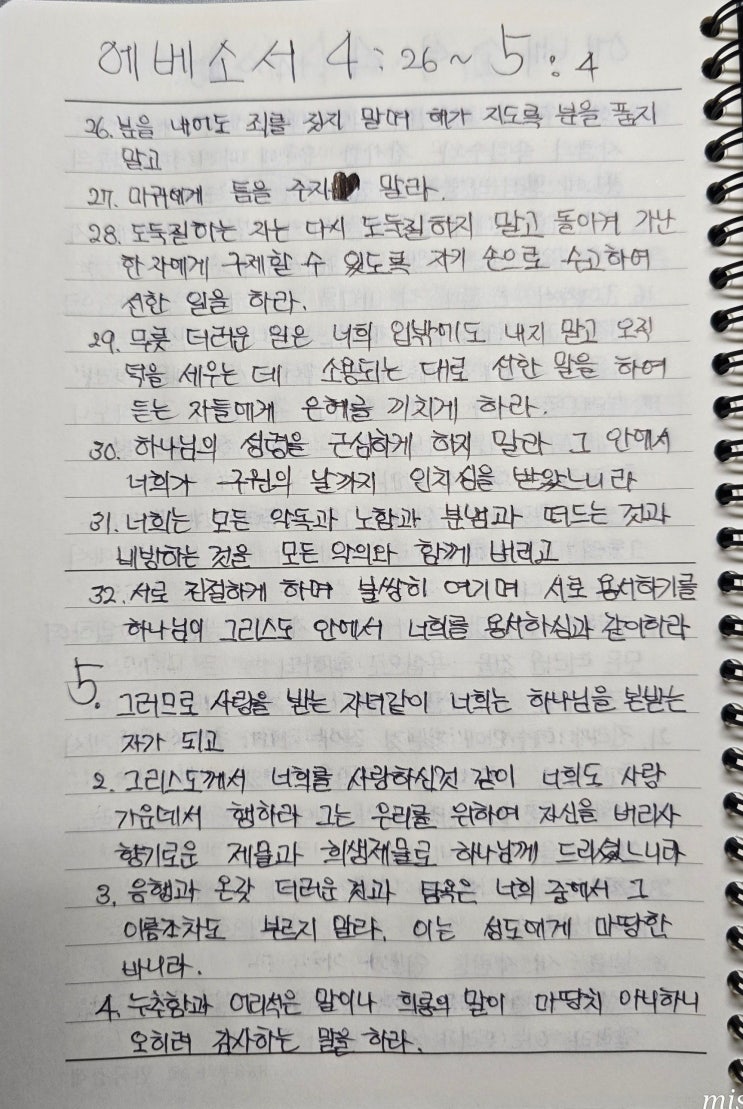 에베소서 4:26~5:4
26. 분을 내어도 죄를 짓지 말며 해가 지도록 분을 품지
말고
27. 마귀에게 틈을 주지 말라.
28. 도둑질하는 자는 다시 도둑질하지 말고 돌이켜 가난
한 자에게 구제할 수 있도록 자기 손으로 수고하여
선한 일을 하라.
29. 무릇 더러운 말은 너희 입밖에도 내지 말고 오직
덕을 세우는 데 소용되는 대로 선한 말을 하여
듣는 자들에게 은혜를 끼치게 하라.
30. 하나님의 성령을 근심하게 하지 말라 그 안에서
너희가 구원의 날까지 인치심을 받았느니라
31. 너희는 모든 악독과 노함과 분냄과 떠드는 것과
비방하는 것을 모든 악의와 함께 버리고
32. 서로 친절하게 하며 불쌍히 여기며 서로 용서하기를
하나님이 그리스도 안에서 너희를 용서하심과 같이하라
5. 그러므로 사랑을 받는 자녀같이 너희는 하나님을 본받는
자가 되고
2. 그리스도께서 너희를 사랑하신것 같이 너희도 사랑
가운데서 행하라 그는 우리를 위하여 자신을 버리사
향기로운 제물과 희생제물로 하나님께 드리셨느니라
3. 음행과 온갖 더러운 것과 탐욕은 너희 중에서 그
이름조차도 부르지 말라. 이는 성도에게 마땅한
바니라.
4. 누추함과 어리석은 말이나 희롱의 말이 마땅치 아니하니
오히려 감사하는 말을 하라.
mis